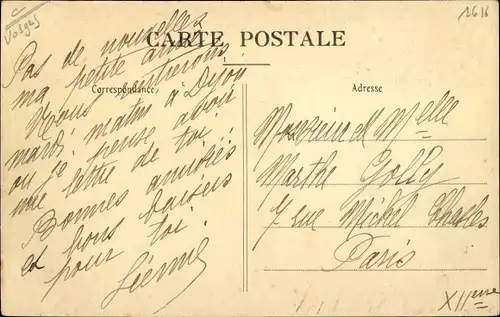 Vosges
2616
CARTE POSTALE
Correspondance
Adresse
Pas de nouvelles
ma petite amie
Nous rentrerons
mardi matin à Dijon
où je pense avoir
une lettre de toi.
Bonnes amitiés
et bons baisers
pour toi.
Monsieur et Melle
Marthe Golly
7 rue Michel Chasles
Paris
XIIeme